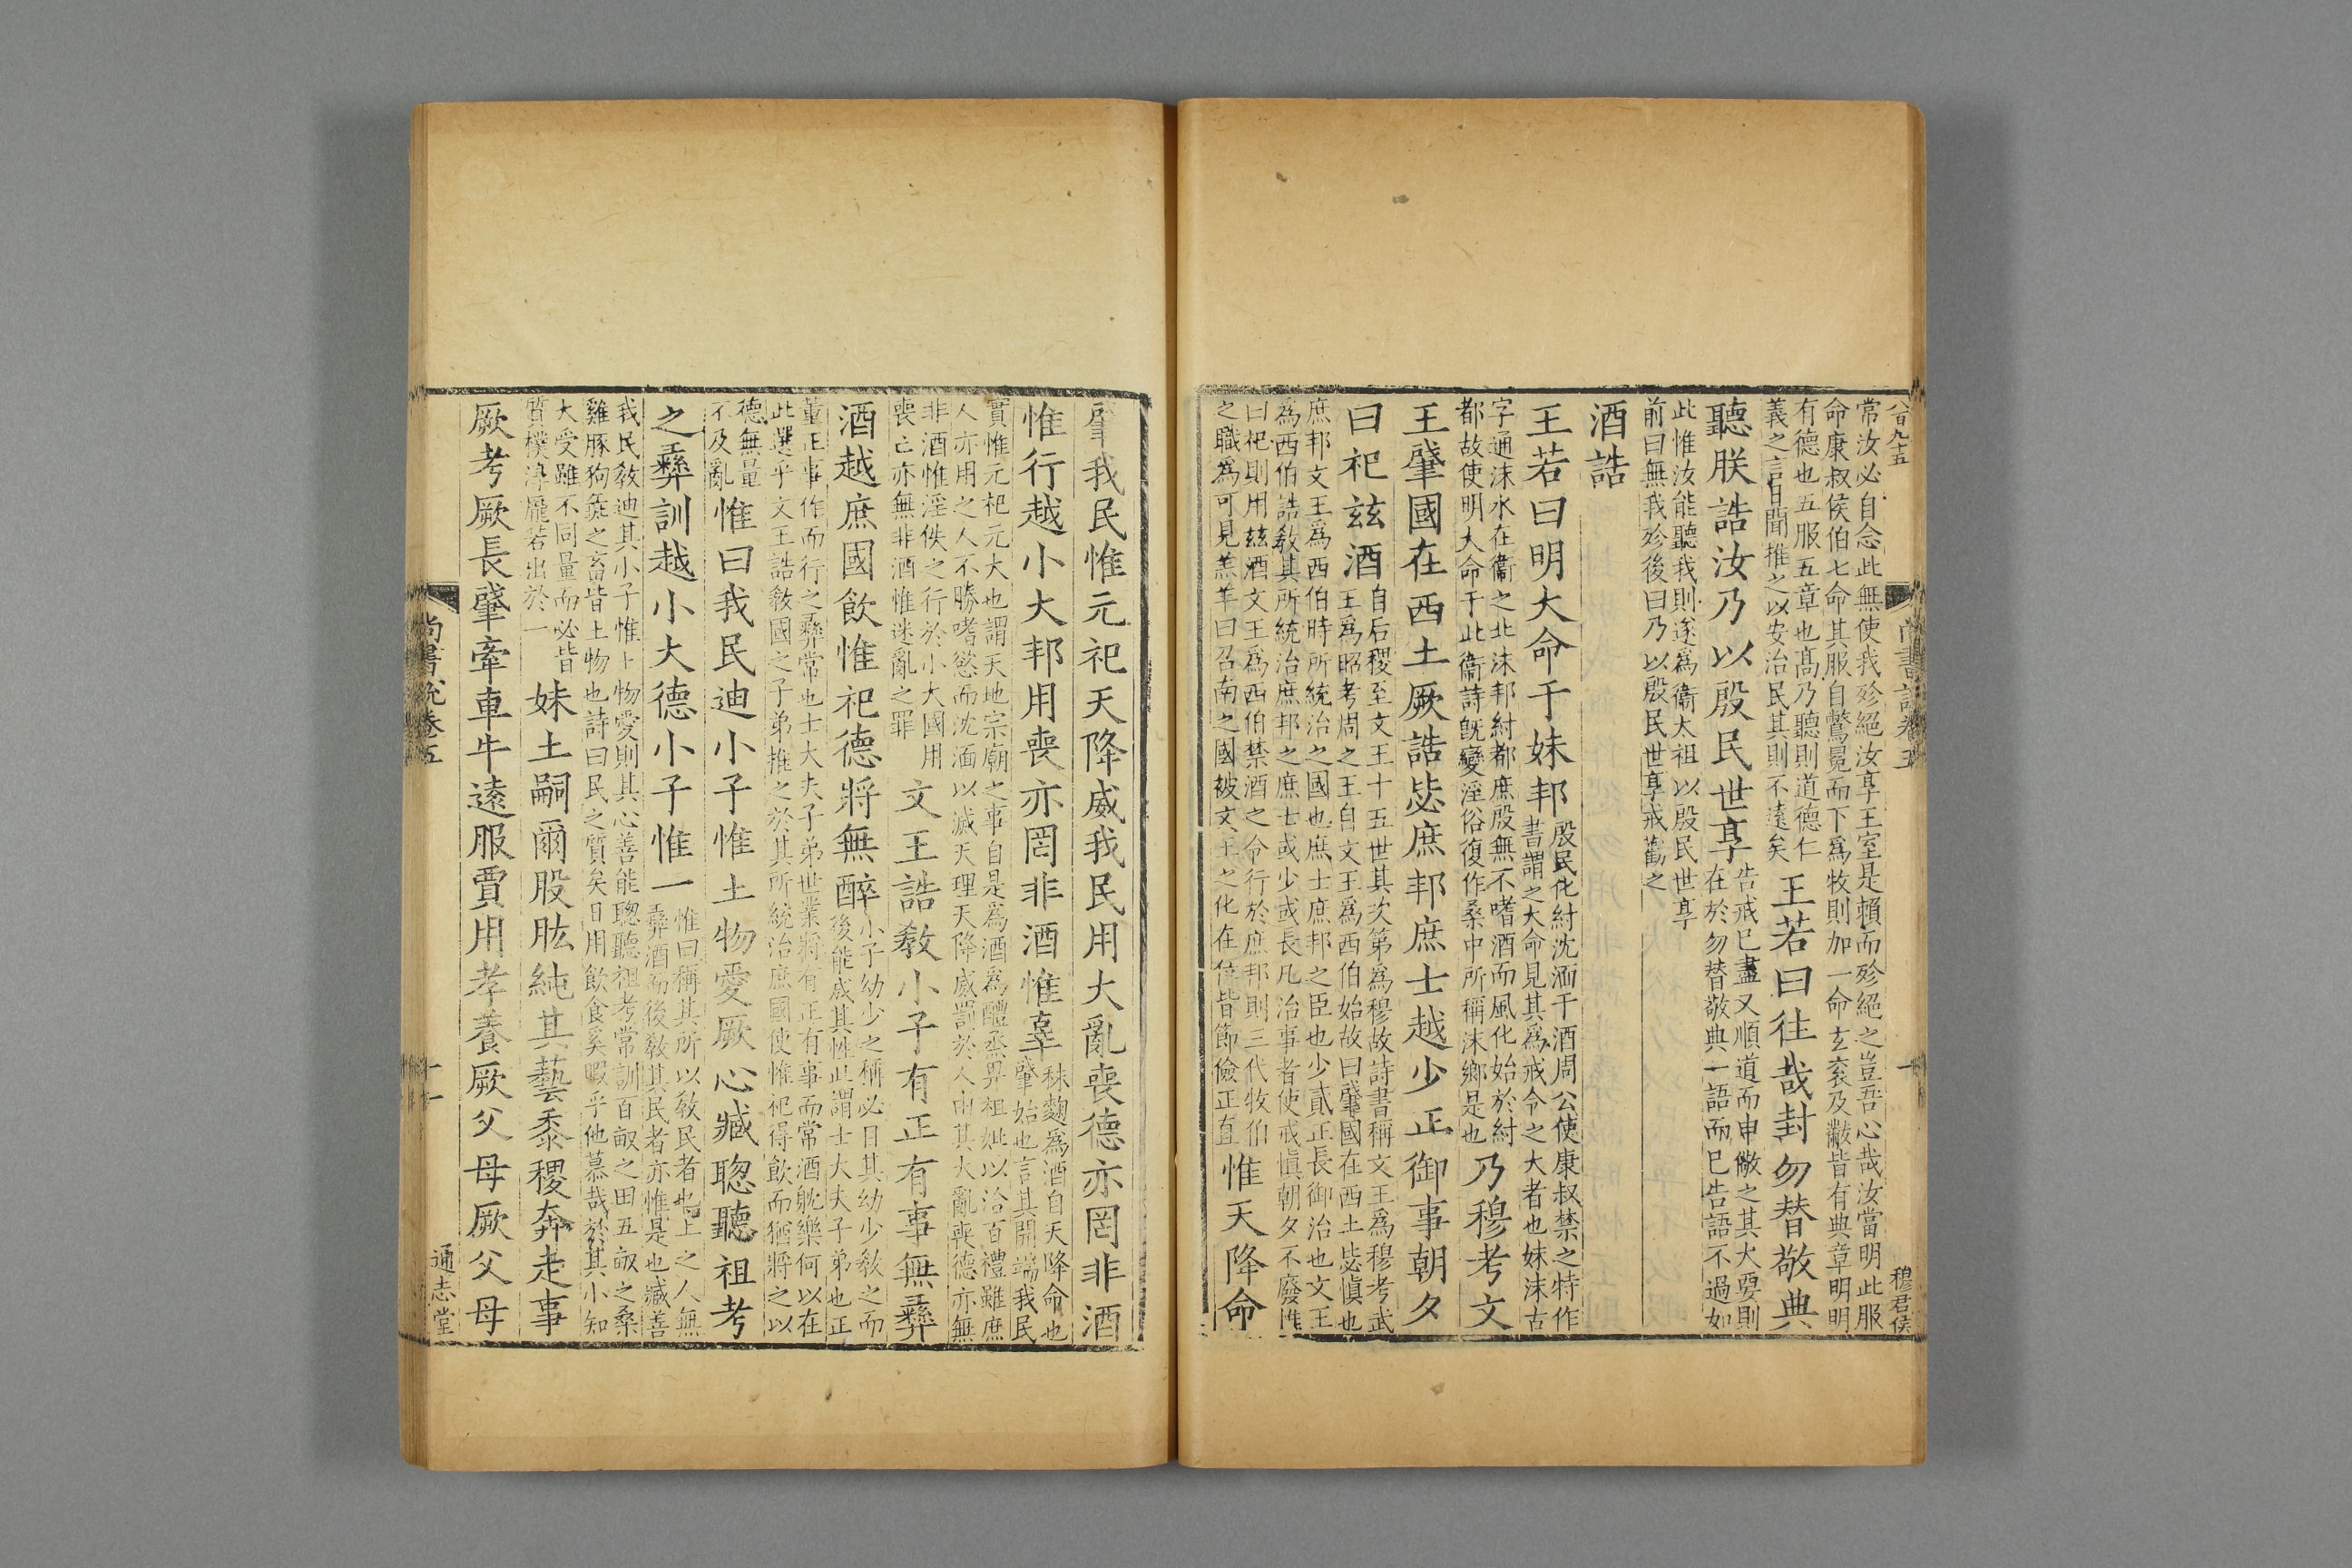 八百九十五
尚書說卷五
十
穆君侯
常汝必自念此無使我殄絕汝享王室是賴而殄絕之豈吾心哉汝當明此服
命康叔侯伯七命其服自鷩冕而下爲牧則加一命玄衮及黻皆有典章明明
有德也五服五章也高乃聽則道德仁
義之言日聞推之以安治民其則不遠矣
王若曰往哉封勿替敬典
聽朕誥汝乃以殷民世享
告戒已盡又順道而申儆之其大要則
在於勿替敬典一語而已告語不過如
此惟汝能聽我則遂爲衞太祖以殷民世享
前曰無我殄後曰乃以殷民世享戒勸之
酒誥
王若曰明大命于妹邦
殷民化紂沈湎于酒周公使康叔禁之特作
書謂之大命見其爲戒令之大者也妹沬古
字通沬水在衞之北沬邦紂都庶殷無不嗜酒而風化始於紂
都故使明大命于此衞詩旣變淫俗復作桑中所稱沬鄉是也
乃穆考文
王肇國在西土厥誥毖庶邦庶士越少正御事朝夕
曰祀兹酒
自后稷至文王十五世其次第爲穆故詩書稱文王爲穆考武
王爲昭考周之王自文王爲西伯始故曰肇國在西土毖愼也
庶邦文王爲西伯時所統治之國也庶士庶邦之臣也少貳正長御治也文王
爲西伯誥敎其所統治庶邦之庶士或少或長凡治事者使戒愼朝夕不廢惟
曰祀則用兹酒文王爲西伯禁酒之令行於庶邦則三代牧伯
之職爲可見羔羊曰召南之國被文王之化在位皆節儉正直
惟天降命
肇我民惟元祀天降威我民用大亂喪德亦罔非酒
惟行越小大邦用喪亦罔非酒惟辜
秫麴爲酒自天降命也
肇始也言其開端我民
實惟元祀元大也謂天地宗廟之事自是爲酒爲醴烝畀祖妣以洽百禮雖庶
人亦用之人不勝嗜慾而沈湎以滅天理天降威罰於人由其大亂喪德亦無
非酒惟淫佚之行於小大國用
喪亡亦無非酒惟迷亂之罪
文王誥敎小子有正有事無彝
酒越庶國飲惟祀德將無醉
小子幼少之稱必目其幼少敎之而
後能成其性此謂士大夫子弟也正
董正事作而行之彝常也士大夫子弟世業將有正有事而常酒躭樂何以在
此選乎文王誥敎國之子弟推之於其所統治庶國使惟祀得飲而猶將之以
德無量
不及亂
惟曰我民迪小子惟土物愛厥心臧聰聽祖考
之彝訓越小大德小子惟一
惟曰稱其所以敎民者也上之人無
彝酒而後敎其民者亦惟是也臧善
我民敎迪其小子惟土物愛則其心善能聰聽祖考常訓百畝之田五畝之桑
雞豚狗彘之畜皆土物也詩曰民之質矣日用飲食奚暇乎他慕哉於其小知
大受雖不同量而必皆
質樸淳龐若出於一
妹土嗣爾股肱純其藝黍稷奔走事
厥考厥長肇牽車牛遠服賈用孝養厥父母厥父母
尚書說卷五
十一
通志堂